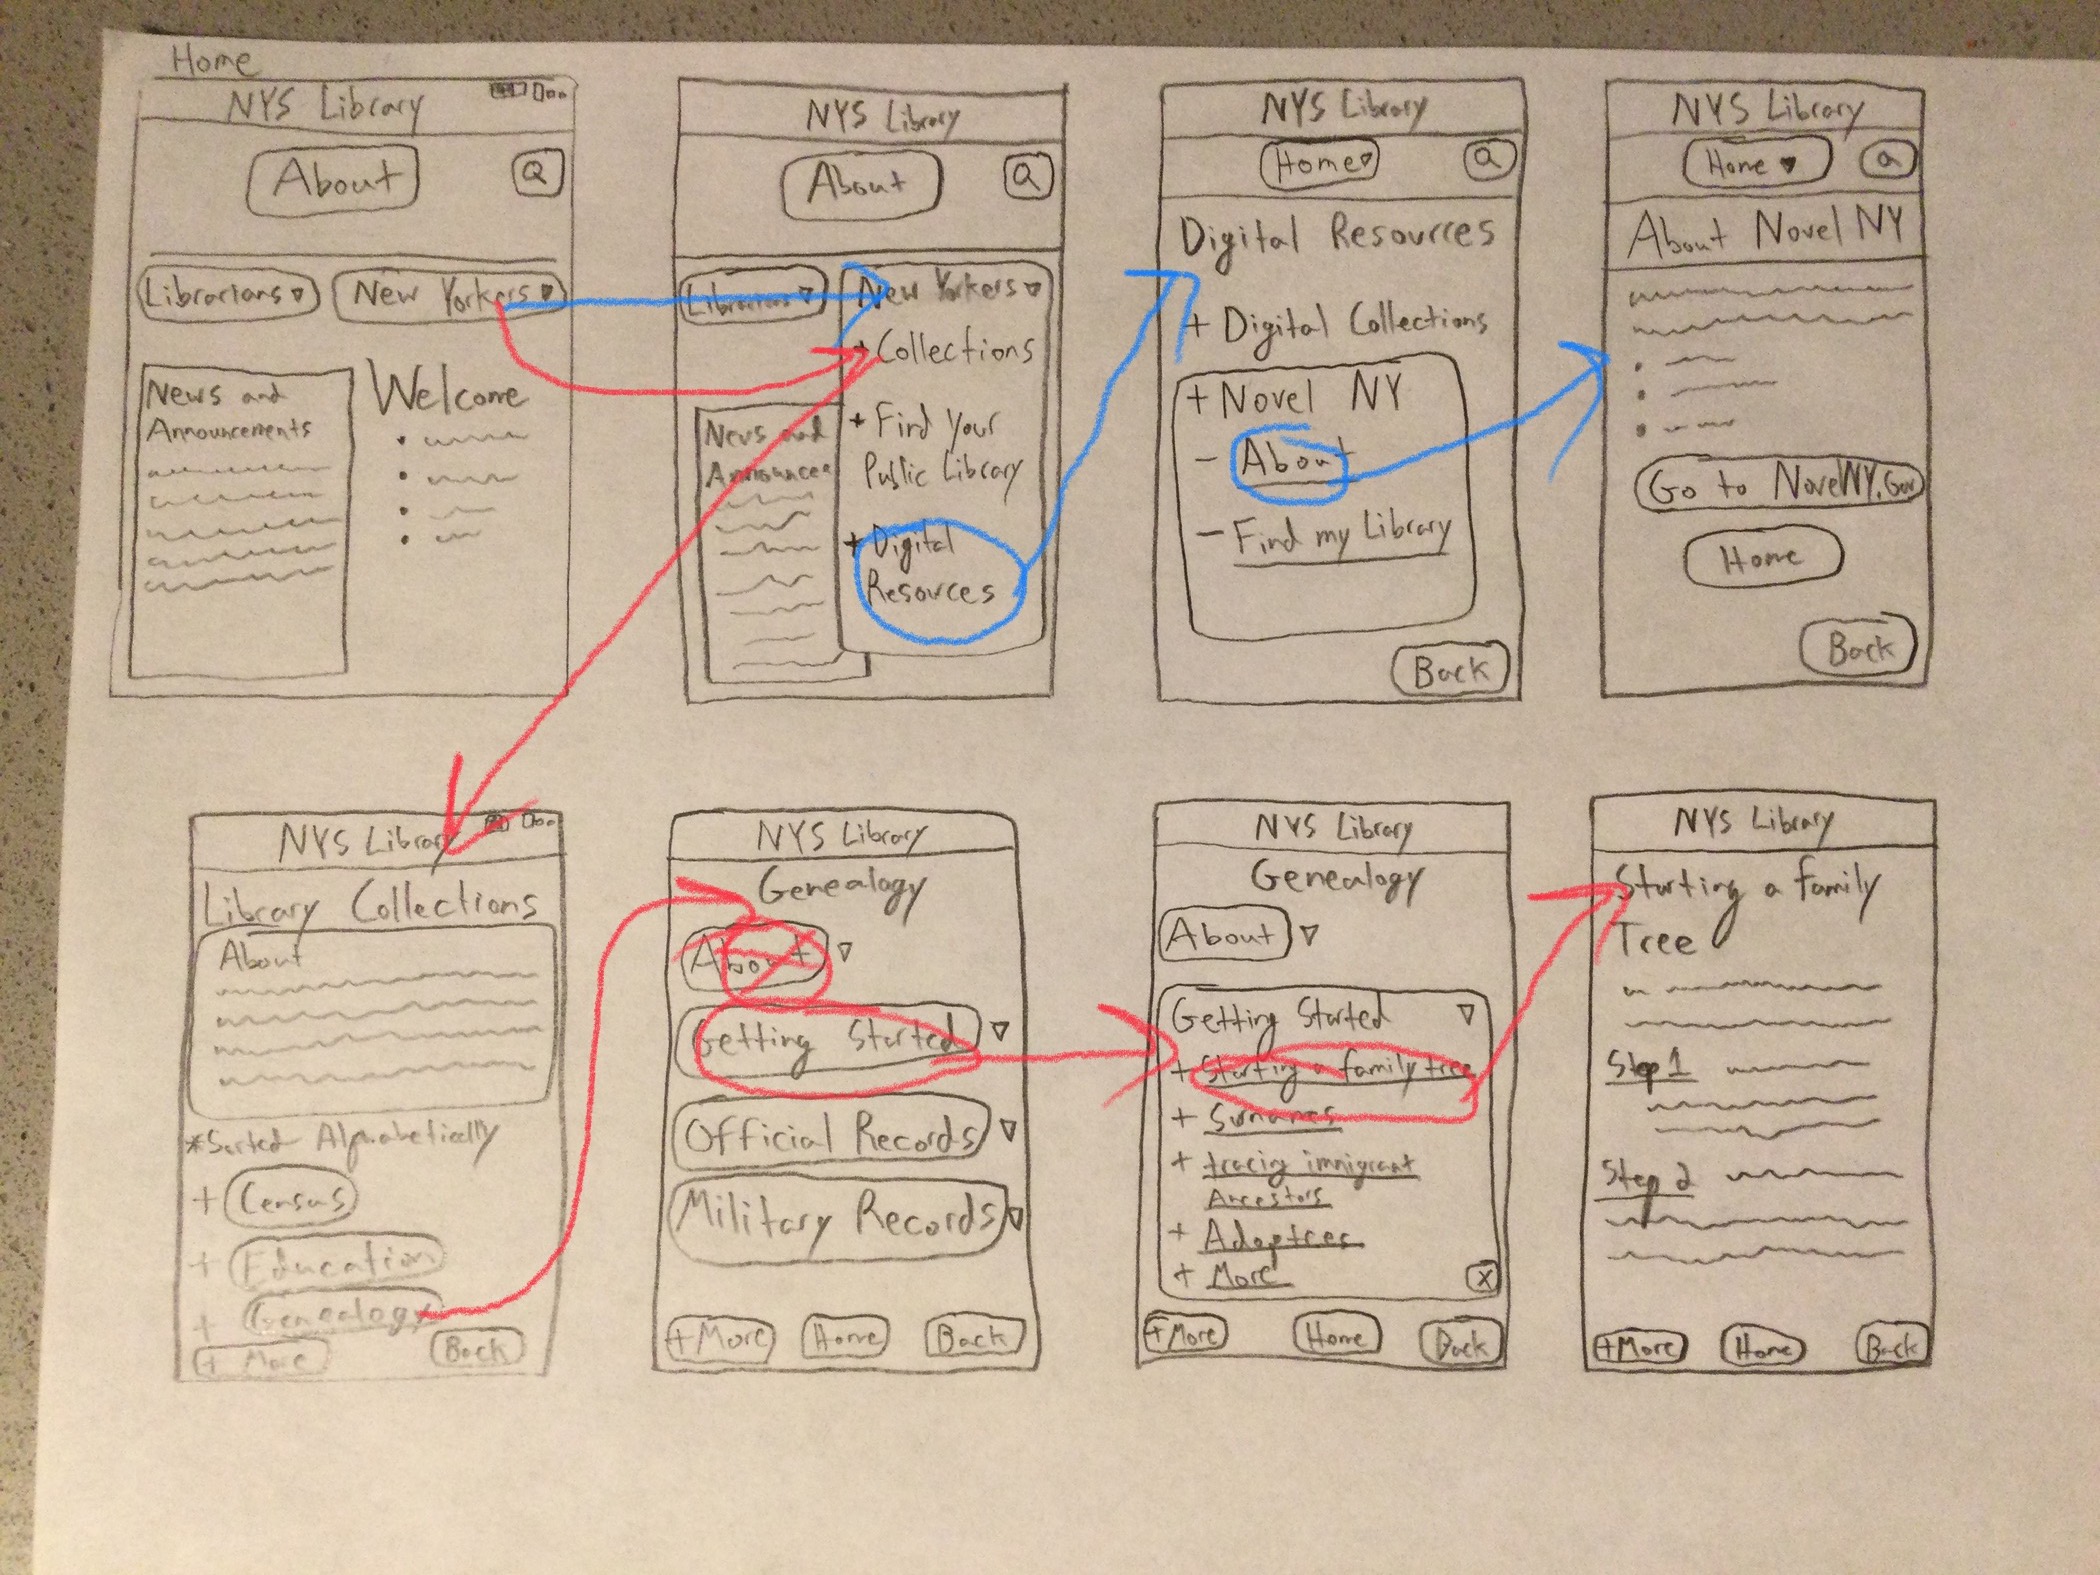 Home
NYS Library
About
Q
Librarians
New Yorkers
News and
Announcements
Welcome
NYS Library
About
Q
Librarians
New Yorkers
+ Collections
+ Find Your
Public Library
+ Digital
Resources
News and
Announce
NYS Library
Home
Q
Digital Resources
+ Digital Collections
+ Novel NY
- About
- Find my Library
Back
NYS Library
Home
Q
About Novel NY
Go to NovelNY.Gov
Home
Back
NYS Library
Library Collections
About
*Sorted Alphabetically
+ Census
+ Education
+ Genealogy
+ More
Back
NYS Library
Genealogy
About
Getting Started
Official Records
Military Records
+More
Home
Back
NYS Library
Genealogy
About
Getting Started
+ Starting a family tree
+ Surnames
+ tracing immigrant
Ancestors
+ Adoptees
+ More
X
+More
Home
Back
NYS Library
Starting a family
Tree
Step 1
Step 2
+More
Home
Back